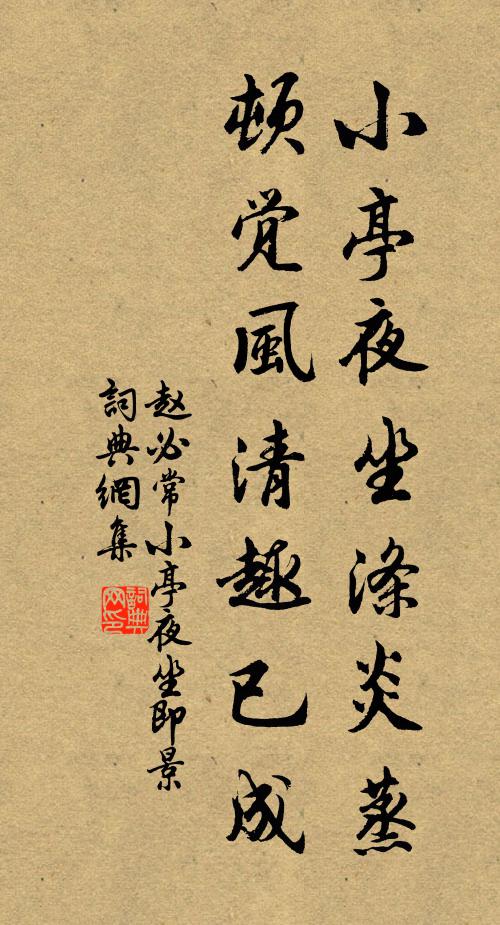 小亭夜坐滌炎蒸
頓覚風清趣已成
赵必常小亭夜坐即景
詞典網集
詞典网印